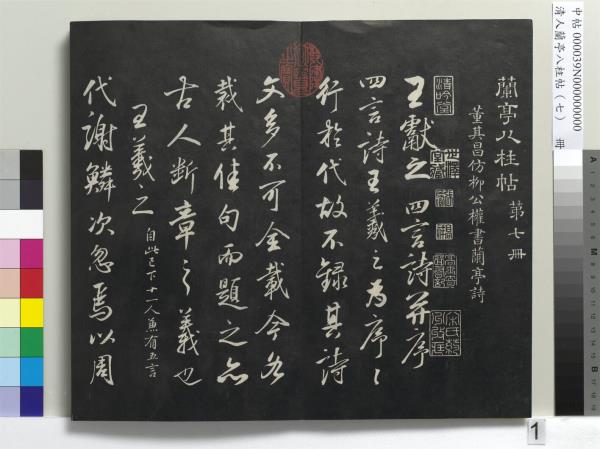 中帖 000039N000000000
清人蘭亭八柱帖（七） 冊
蘭亭八柱帖 第七冊
董其昌仿柳公權書蘭亭詩
王獻之四言詩并序
四言詩王羲之為序序
行於代故不錄其詩
文多不可全載今各
裁其佳句而題之亦
古人斷章之義也
王羲之 自此已下十一人兼有五言
代謝鱗次忽焉以周
清吟堂
1